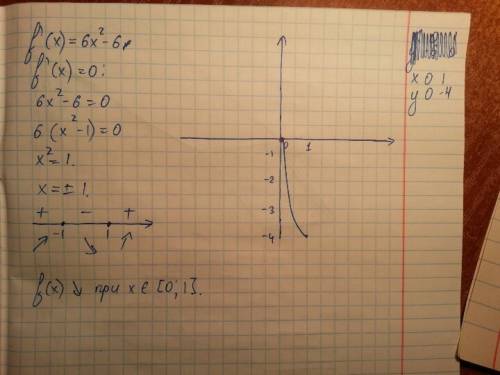 f'(x) = 6x² - 6
f'(x) = 0:
6x² - 6 = 0
6(x² - 1) = 0
x² = 1.
x = ± 1.
+ - +
-1 1
f(x) ↘ при x ∈ [0; 1].
0 1
-1
-2
-3
-4
x 0 1
y 0 -4